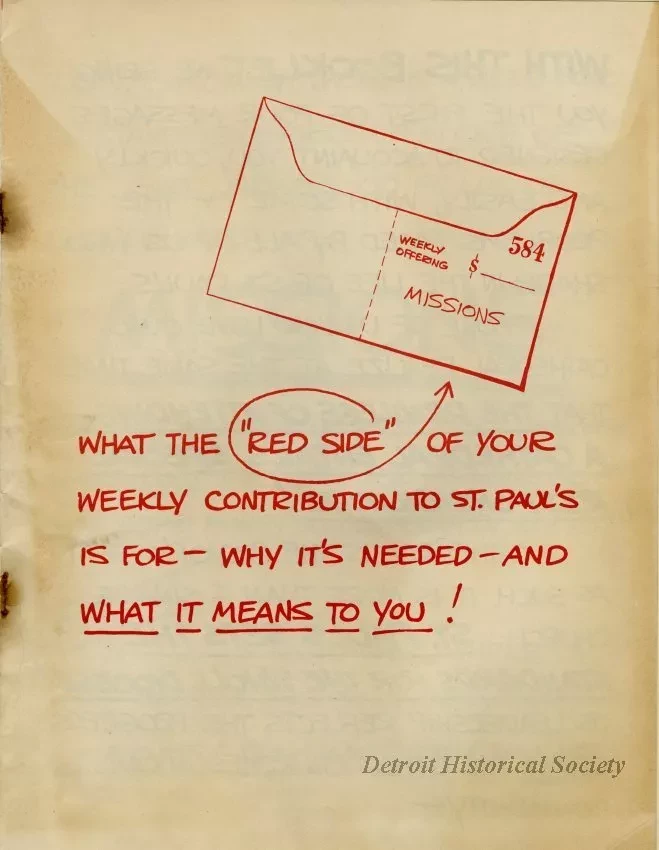 584
WEEKLY
OFFERING
$
MISSIONS
WHAT THE "RED SIDE" OF YOUR
WEEKLY CONTRIBUTION TO ST. PAUL'S
IS FOR — WHY IT'S NEEDED — AND
WHAT IT MEANS TO YOU!
Detroit Historical Society